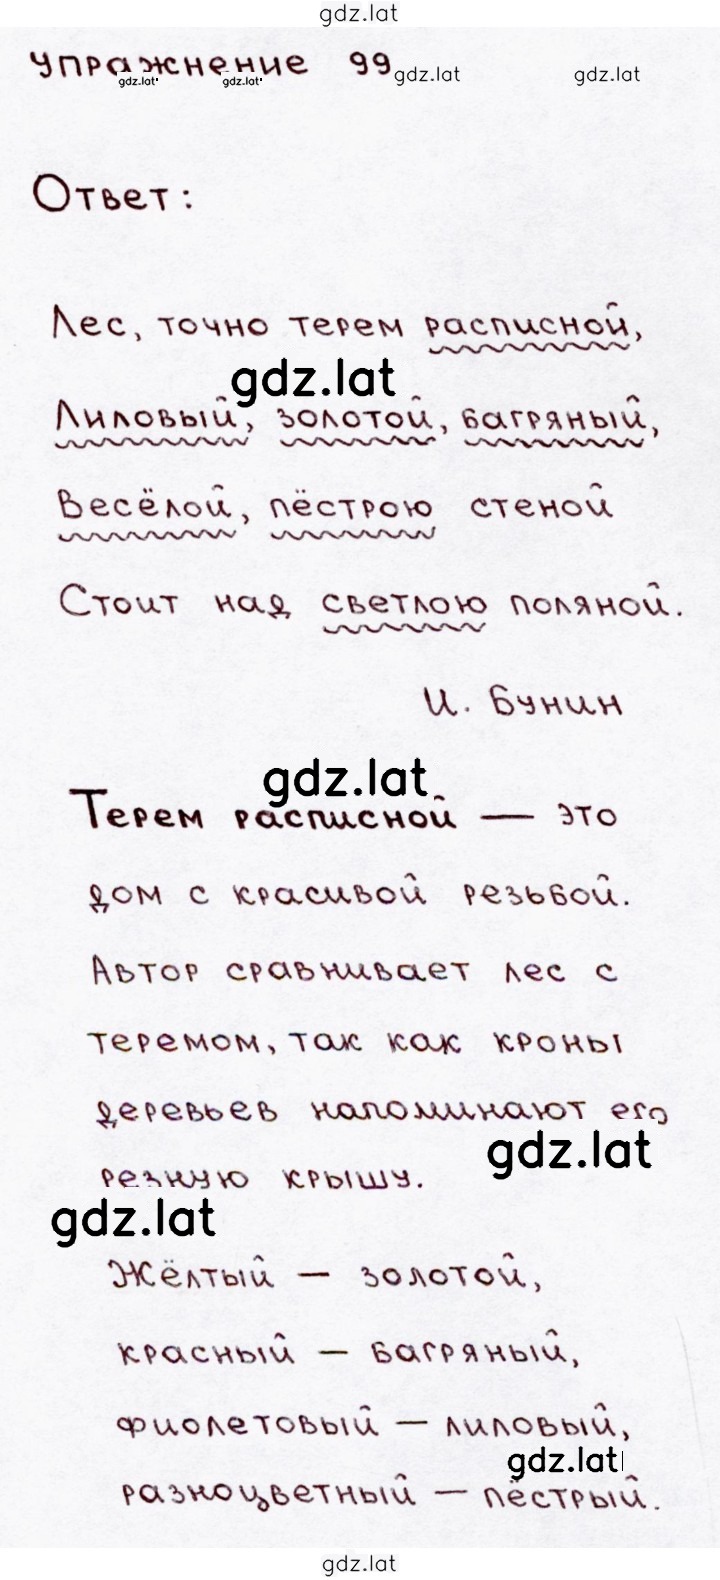 gdz.lat
упражнение 99
gdz.lat gdz.lat gdz.lat gdz.lat
Ответ:
Лес, точно терем расписной,
gdz.lat
Лиловый, золотой, багряный,
Весёлой, пёстрою стеной
Стоит над светлою поляной.
И. Бунин
gdz.lat
Терем расписной — это
дом с красивой резьбой.
Автор сравнивает лес с
теремом, так как кроны
деревьев напоминают его
gdz.lat
резную крышу.
gdz.lat
Жёлтый — золотой,
красный — багряный,
фиолетовый — лиловый,
gdz.lat
разноцветный — пёстрый.
gdz.lat